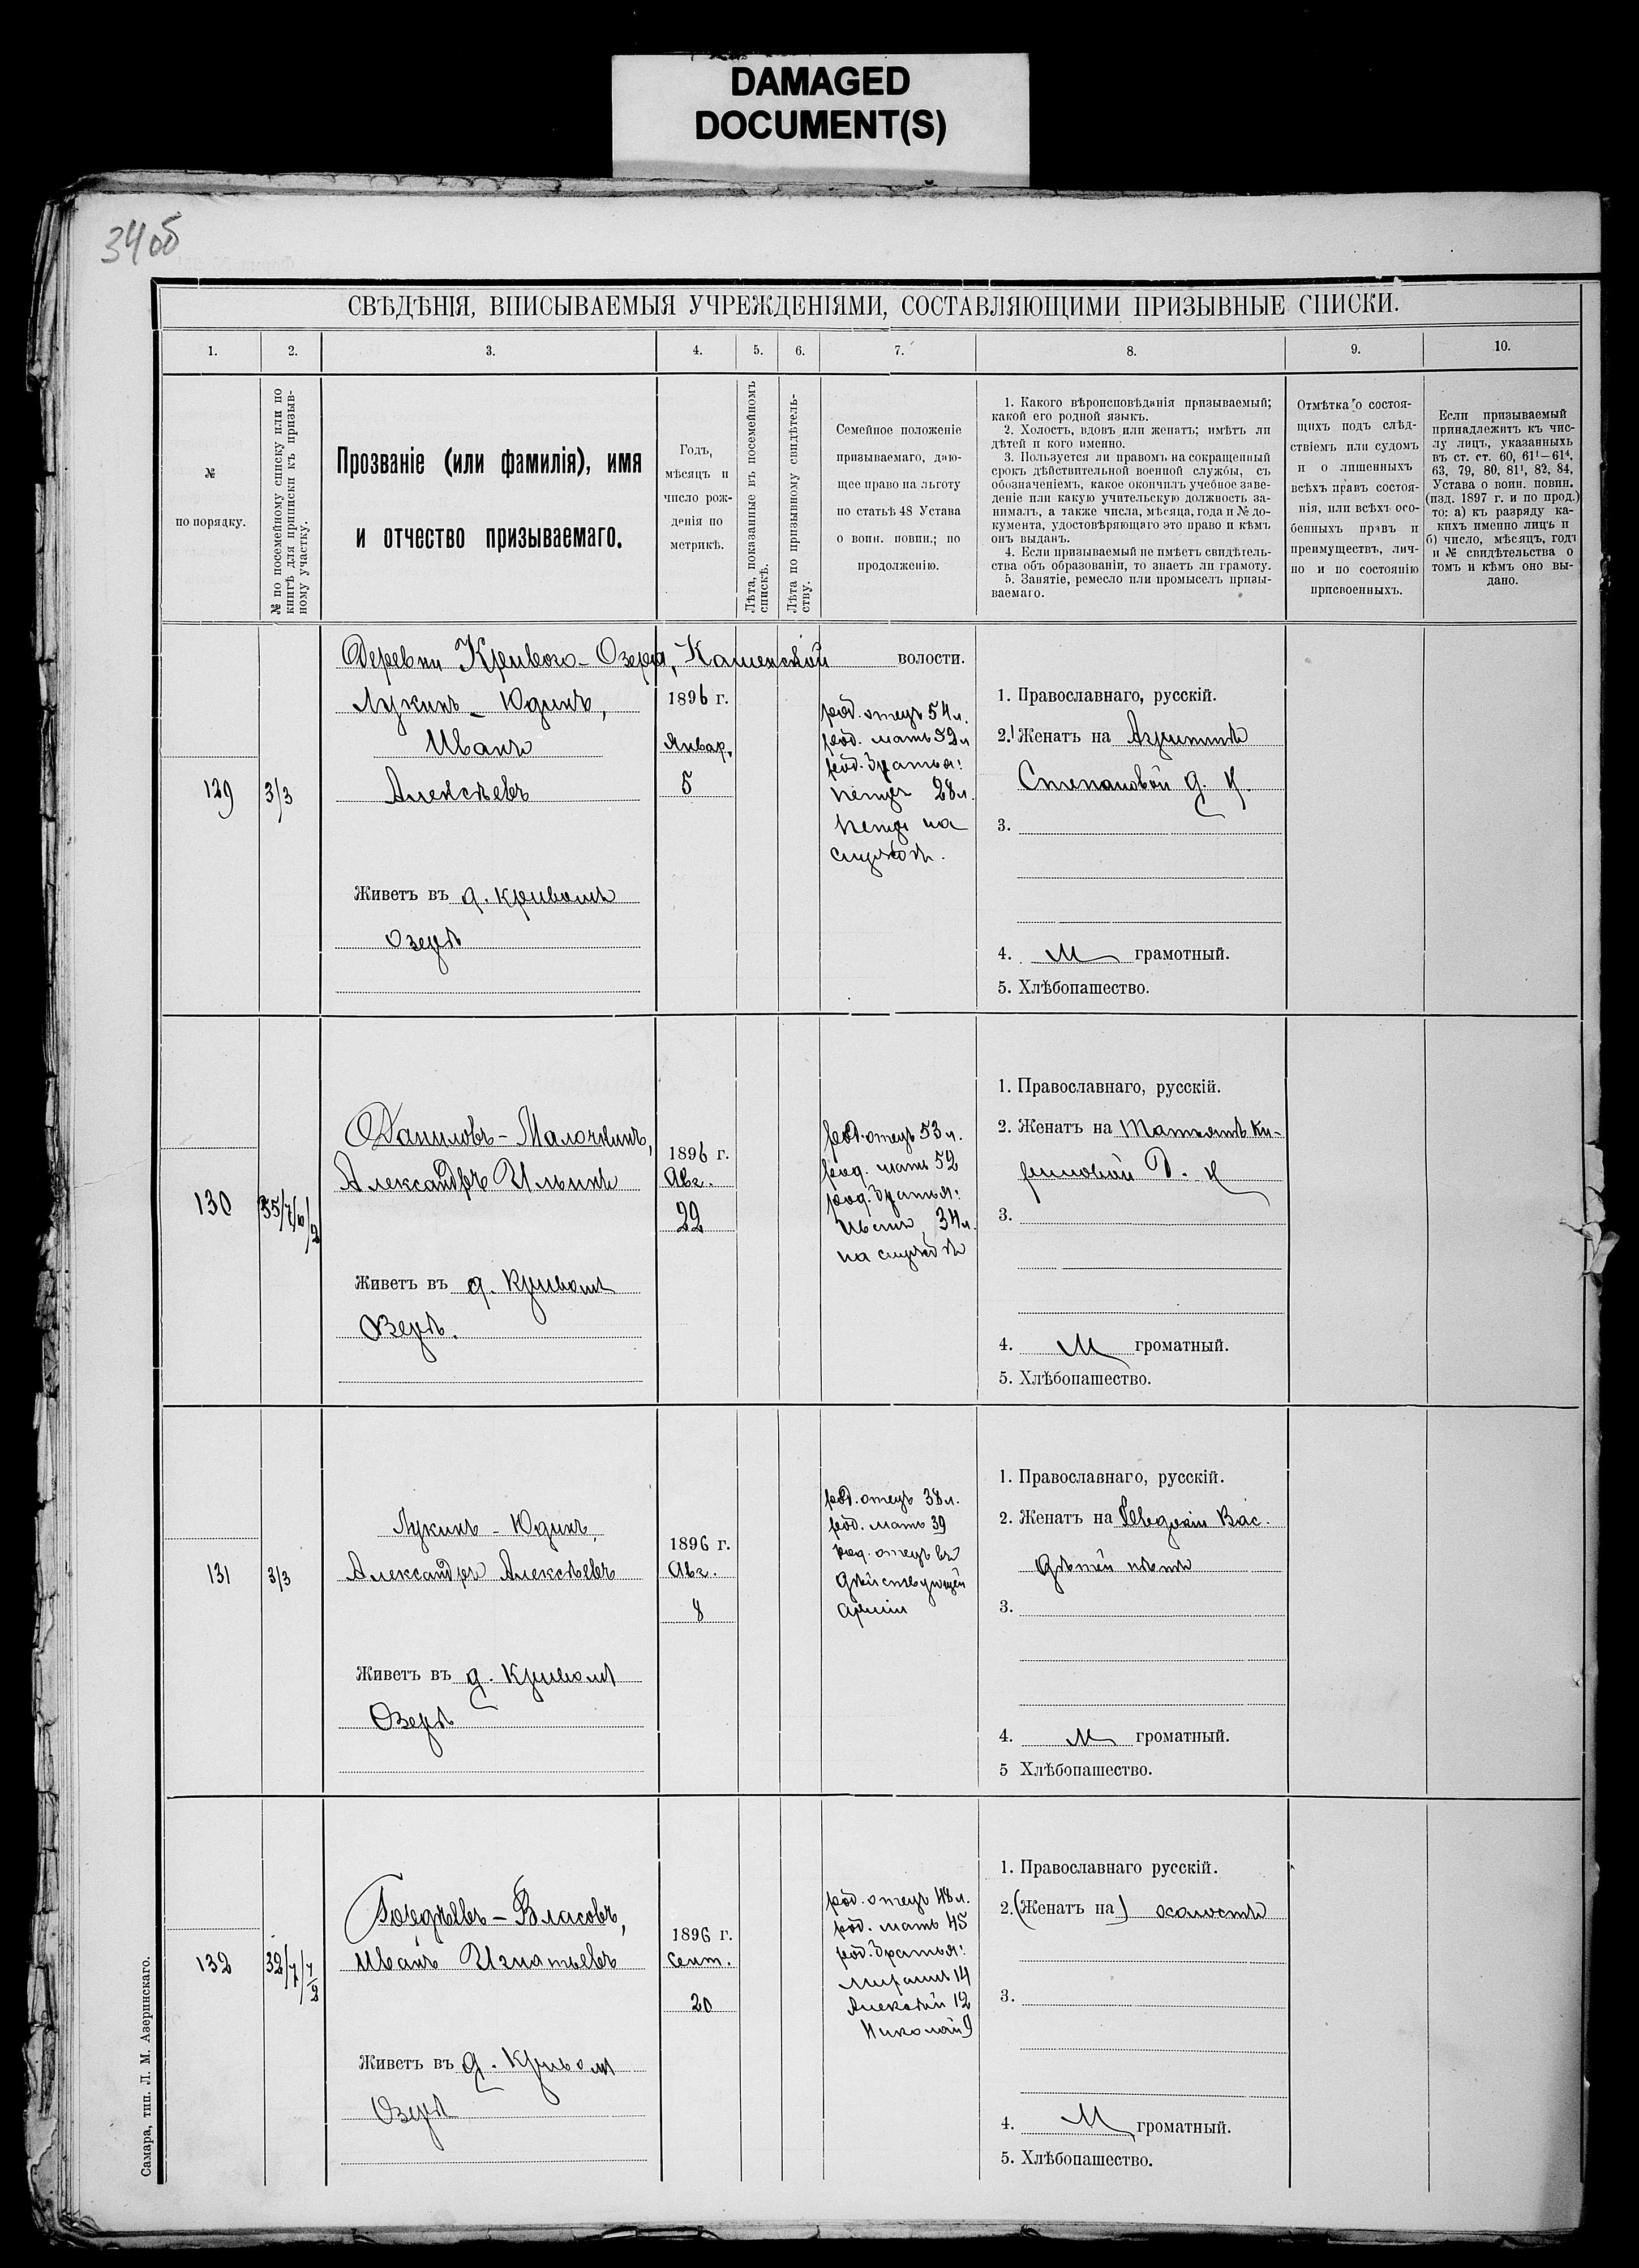 DAMAGED
DOCUMENT(S)
34 об
СВѢДѢНІЯ, ВПИСЫВАЕМЫЯ УЧРЕЖДЕНІЯМИ, СОСТАВЛЯЮЩИМИ ПРИЗЫВНЫЕ СПИСКИ.
1. 2. 3. 4. 5. 6. 7. 8. 9. 10.
№
по порядку.
№ по посемейному списку или по
книгѣ для приписки къ призыв-
ному участку.
Прозваніе (или фамилія), имя
и отчество призываемаго.
Годъ,
мѣсяцъ и
число рож-
денія по
метрикѣ.
Лѣта, показанные въ посемейномъ
спискѣ.
Лѣта по призывному свидѣтель-
ству.
Семейное положеніе
призываемаго, даю-
щее право на льготу
по статьѣ 48 Устава
о воин. повин.; по
продолженію.
1. Какого вѣроисповѣданія призываемый;
какой его родной языкъ.
2. Холостъ, вдовъ или женатъ; имѣтъ ли
дѣтей и кого именно.
3. Пользуется ли правомъ на сокращенный
срокъ дѣйствительной военной службы, съ
обозначеніемъ, какое окончилъ учебное заве-
деніе или какую учительскую должность за-
нималъ, а также числа, мѣсяца, года и № до-
кумента, удостовѣряющаго это право и кѣмъ
онъ выданъ.
4. Если призываемый не имѣетъ свидѣтель-
ства объ образованіи, то знаетъ ли грамоту.
5. Занятіе, ремесло или промыселъ призы-
ваемаго.
Отмѣтка о состоя-
щихъ подъ слѣд-
ствіемъ или судомъ
и о лишенныхъ
всѣхъ правъ состоя-
нія, или всѣхъ осо-
бенныхъ правъ и
преимуществъ, лич-
но и по состоянію
присвоенныхъ.
Если призываемый
принадлежитъ къ чис-
лу лицъ, указанныхъ
въ ст. ст. 60, 61¹—61⁴,
63, 79, 80, 81¹, 82, 84,
Устава о воин. повин.
(изд. 1897 г. и по прод.)
то: а) къ разряду ка-
кихъ именно лицъ и
б) число, мѣсяцъ, годъ
и № свидѣтельства о
томъ и кѣмъ оно вы-
дано.
Деревни Кривого-Озера, Каменской волости.
129
3/3
Лукинъ - Юдинъ,
Иванъ
Алексѣевъ
Живетъ въ д. Кривомъ
Озерѣ
1896 г.
Январ.
5
род. отецъ 54 л.
род. мать 52 л
род. братья:
Петръ 28 л.
Петръ на
службѣ.
1. Православнаго, русскій.
2. Женатъ на
Степановой д. н.
3.
4. М грамотный.
5. Хлѣбопашество.
130
Даниловъ - Малочкинъ,
Александръ Ильинъ
Живетъ въ д. Кривомъ
Озерѣ.
1896 г.
Авг.
22
род. отецъ 53 л.
род. мать 52
род. братья:
34 л.
на службѣ
1. Православнаго, русскій.
2. Женатъ на Татьянѣ Ки-
рилловой д. н
3.
4. М громатный.
5. Хлѣбопашество.
131
3/3
Лукинъ - Юдинъ,
Александръ Алексѣевъ
Живетъ въ д. Кривомъ
Озерѣ
1896 г.
Авг.
8
род. отецъ 38 л.
род. мать 39
род. отецъ въ
дѣйствующей
арміи
1. Православнаго, русскій.
2. Женатъ на Евдокіи Вас.
дѣтей нѣтъ
3.
4. М громатный.
5 Хлѣбопашество.
132
Гордѣевъ - Власовъ,
Иванъ Игнатьевъ
Живетъ въ д. Кривомъ
Озерѣ
1896 г.
Сент.
20
род. отецъ 48 л.
род. мать 45
род. братья:
14
Алексѣй 12
Николай 9
1. Православнаго русскій.
2. (Женатъ на) холостъ
3.
4. М громатный.
5. Хлѣбопашество.
Самара, тип. Л. М. Азеринскаго.